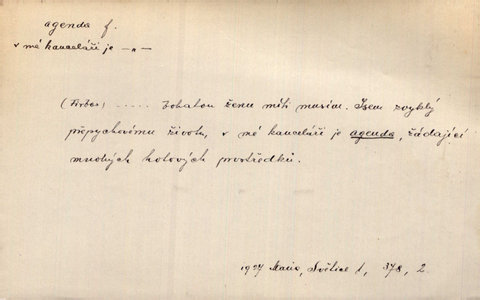 agenda f.
v mé kanceláři je —„—
(Forbes) ..... Bohatou ženu míti musím. Jsem zvyklý
přepychovému životu, v mé kanceláři je agenda, žádající
mnohých hotových prostředků.
1927 Maria, Světice 1, 378, 2